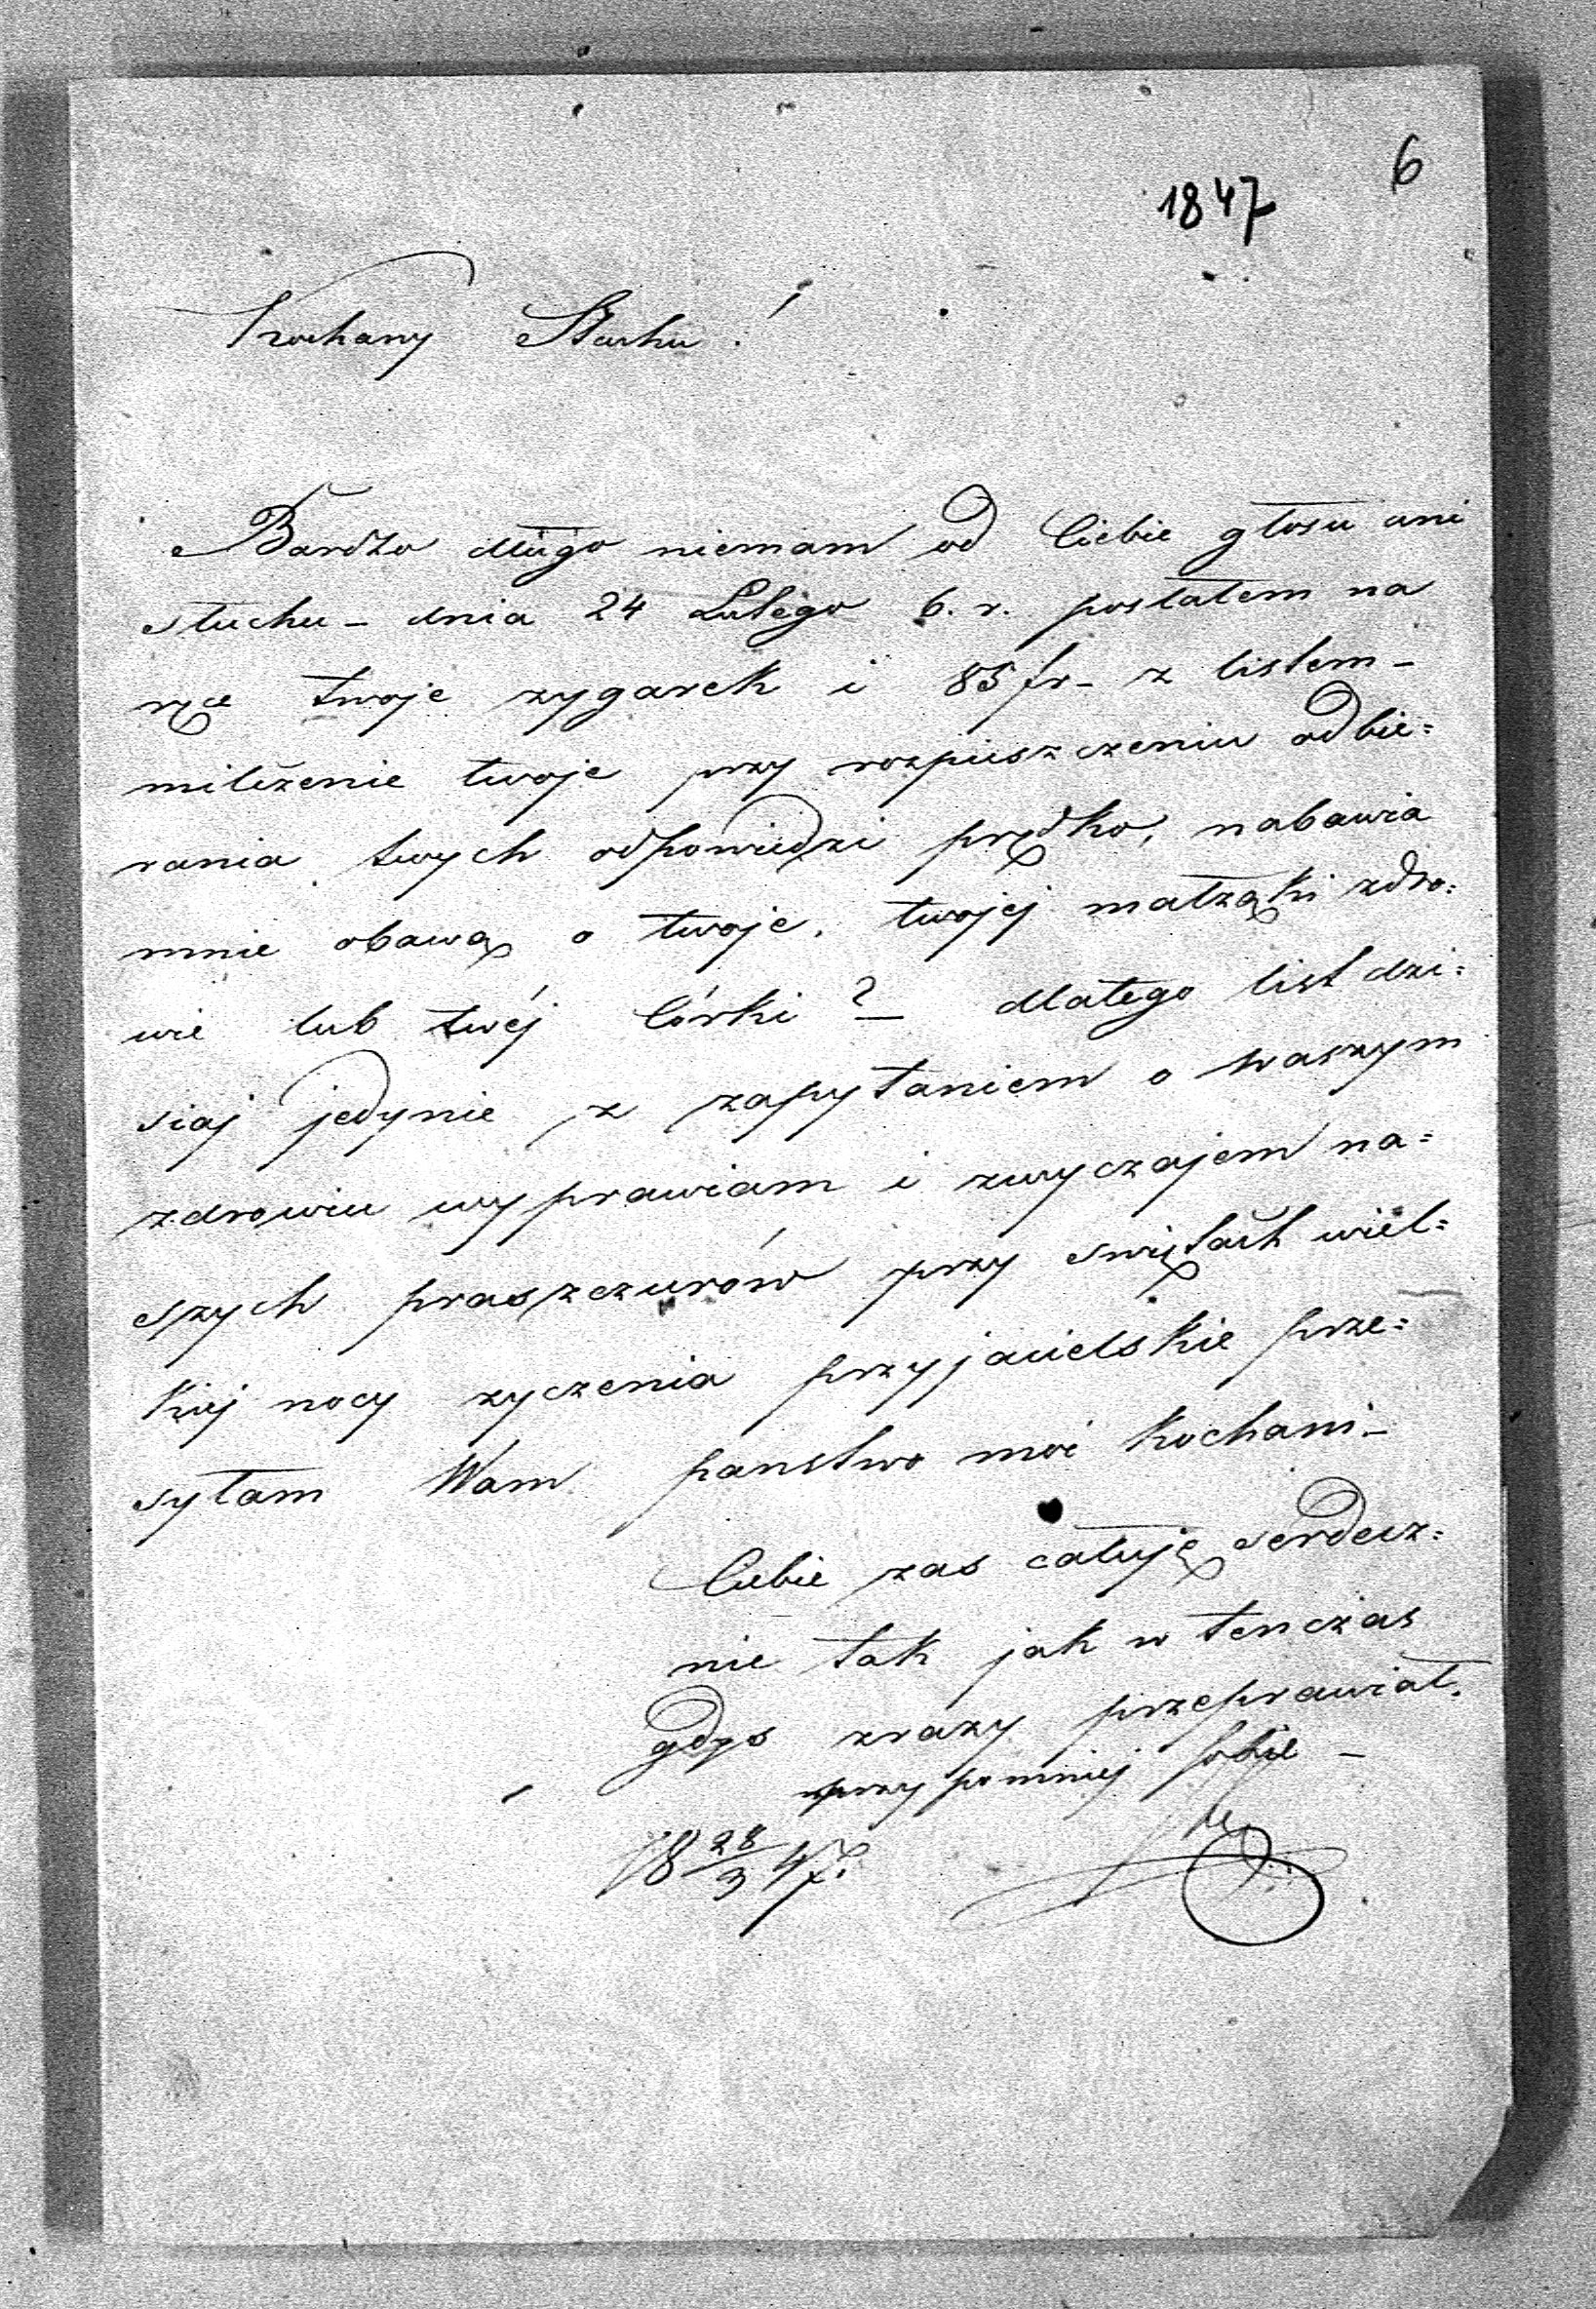 6
1847
Kochany Stachu!
Bardzo długo niemam od Ciebie głosu ani
słuchu – dnia 24 Lutego b. r. posłałem na
ręce twoje zygarek i 85 fr– z listem –
milczenie twoje przy rozpuszczeniu odbie=
rania twych odpowiedzi prędko, nabawia
mnie obawą o twoje, twojej małżąki zdro=
wie lub twéj Córki? – dlatego list dzi=
siaj jedynie z zapytaniem o waszym
zdrowiu wyprawiam i zwyczajem na=
szych praszczurów przy swiętach wiel=
kiej nocy zyczenia przyjacielskie prze=
syłam Wam panstwo moi kochani –
Ciebie zas całuję serdecz=
nie tak jak w tenczas
gdys zrazy przeprawiał.
przypomniej sobie –
18 28/3 47.